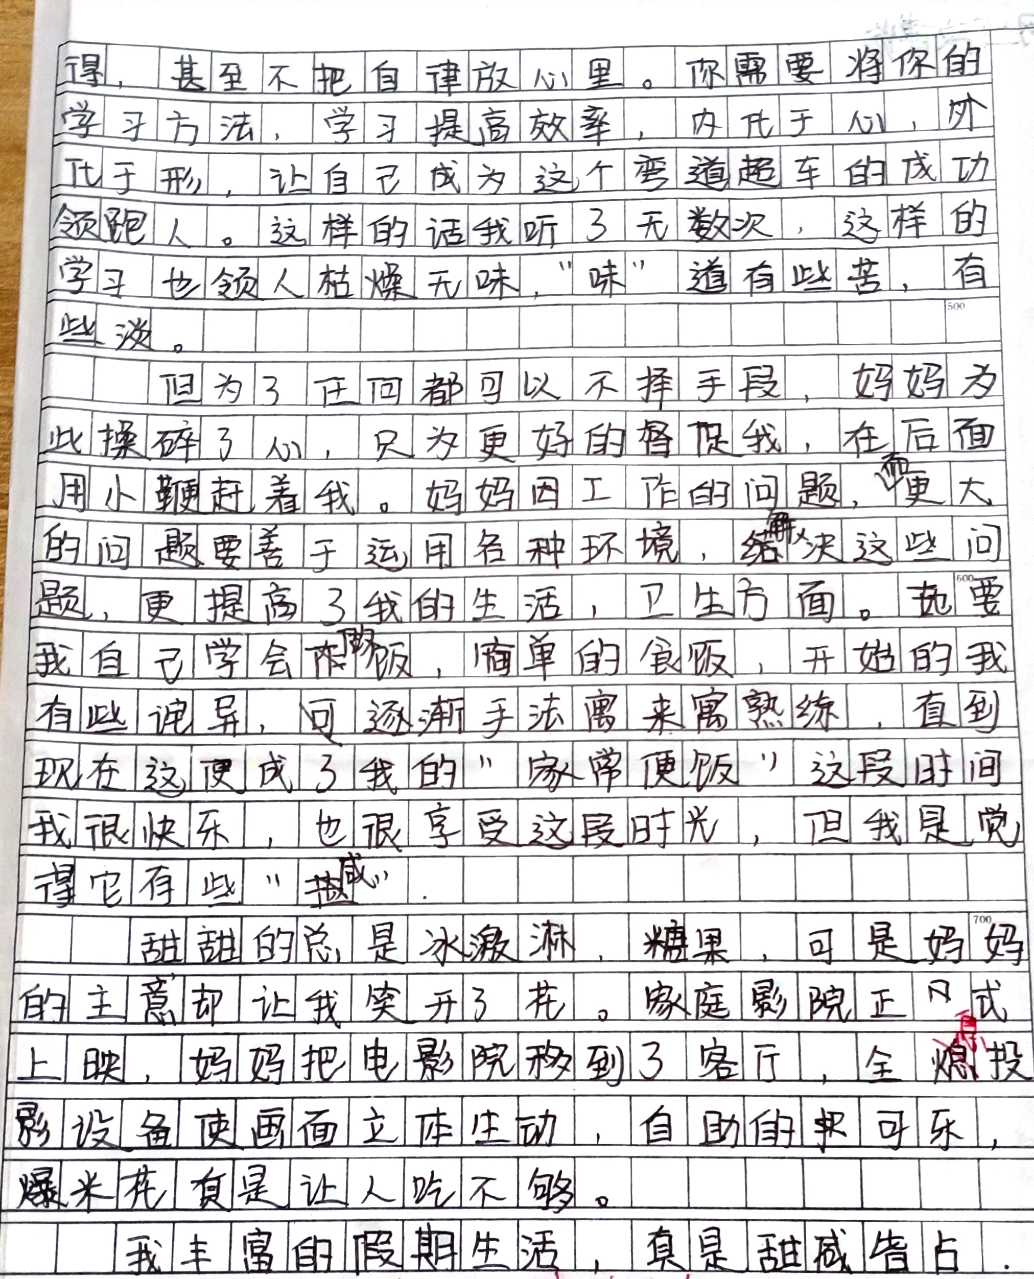 得，甚至不把自律放心里。你需要将你的
学习方法，学习提高效率，内化于心，外
化于形，让自己成为这个弯道超车的成功
领跑人。这样的话我听了无数次，这样的
学习也领人枯燥无味，“味”道有些苦，有
500
些淡。
但为了压回都可以不择手段，妈妈为
此操碎了心，只为更好的督促我，在后面
用小鞭赶着我。妈妈因工作的问题，而更大
的问题要善于运用各种环境，解决这些问
600
题，更提高了我的生活，卫生方面。也要
我自己学会做饭，简单的食饭，开始的我
有些诧异，可逐渐手法寓来寓熟练，直到
现在这便成了我的“家常便饭”这段时间
我很快乐，也很享受这段时光，但我是觉
得它有些“咸”.
700
甜甜的总是冰激淋，糖果，可是妈妈
的主意却让我笑开了花。家庭影院正式
上映，妈妈把电影院移到了客厅，全息投
影设备使画面立体生动，自助的可乐，
爆米花真是让人吃不够。
我丰富的假期生活，真是甜咸皆占.